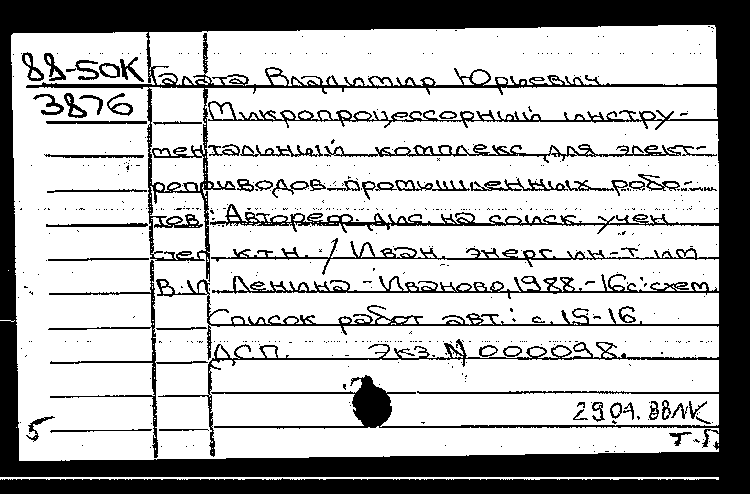 88-50К Галата, Владимир Юрьевич.
3876 Микропроцессорный инстру-
ментальный комплекс для элект-
роприводов промышленных робо-
тов: Автореф. дис. на соиск. учен
степ. к.т.н. / Иван. энерг. ин-т им
В.И. Ленина.-Иваново,1988.-16с.:схем.
Список работ авт.: с. 15-16.
ДСП. Экз. N 000098.
29.04.88
5